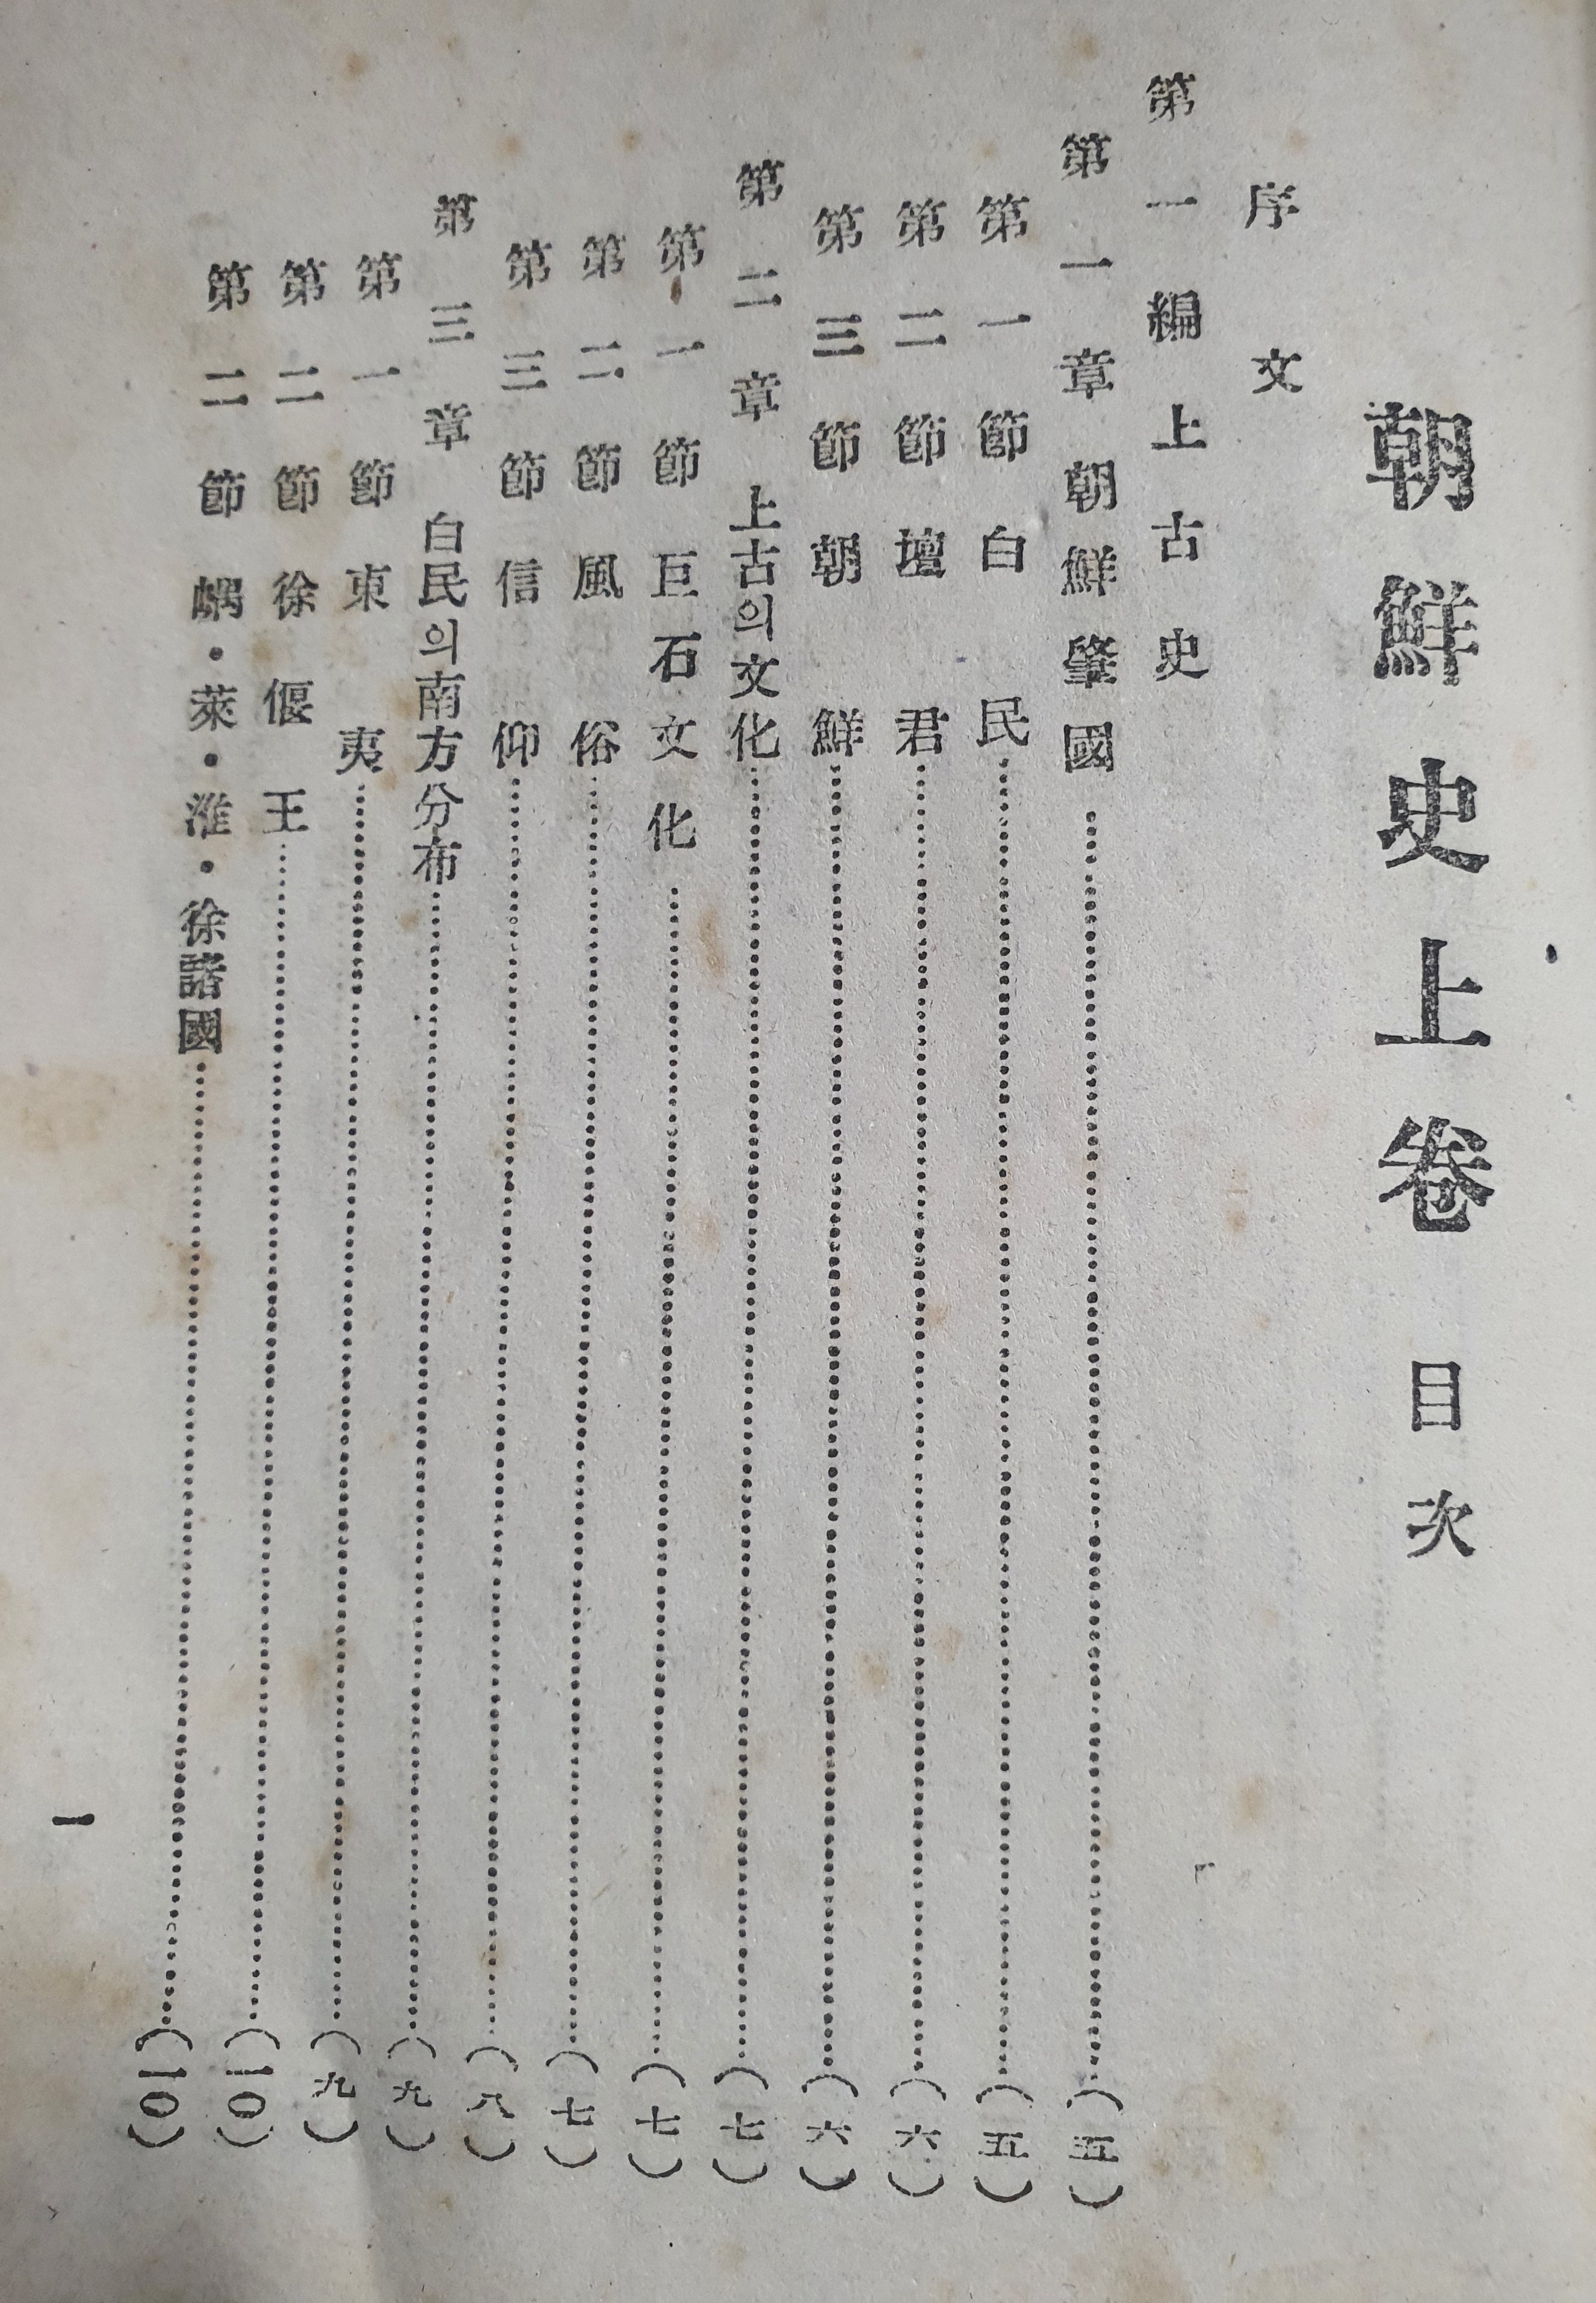 朝鮮史上卷 目次
序文
第一編 上古史
第一章 朝鮮肇國……(五)
第一節 白民……(五)
第二節 壇君……(六)
第三節 朝鮮……(六)
第二章 上古의文化……(七)
第一節 巨石文化……(七)
第二節 風俗……(七)
第三節 信仰……(八)
第三章 白民의南方分布……(九)
第一節 東夷……(九)
第二節 徐偃王……(一〇)
第二節 嵎・萊・淮・徐諸國……(一〇)
一